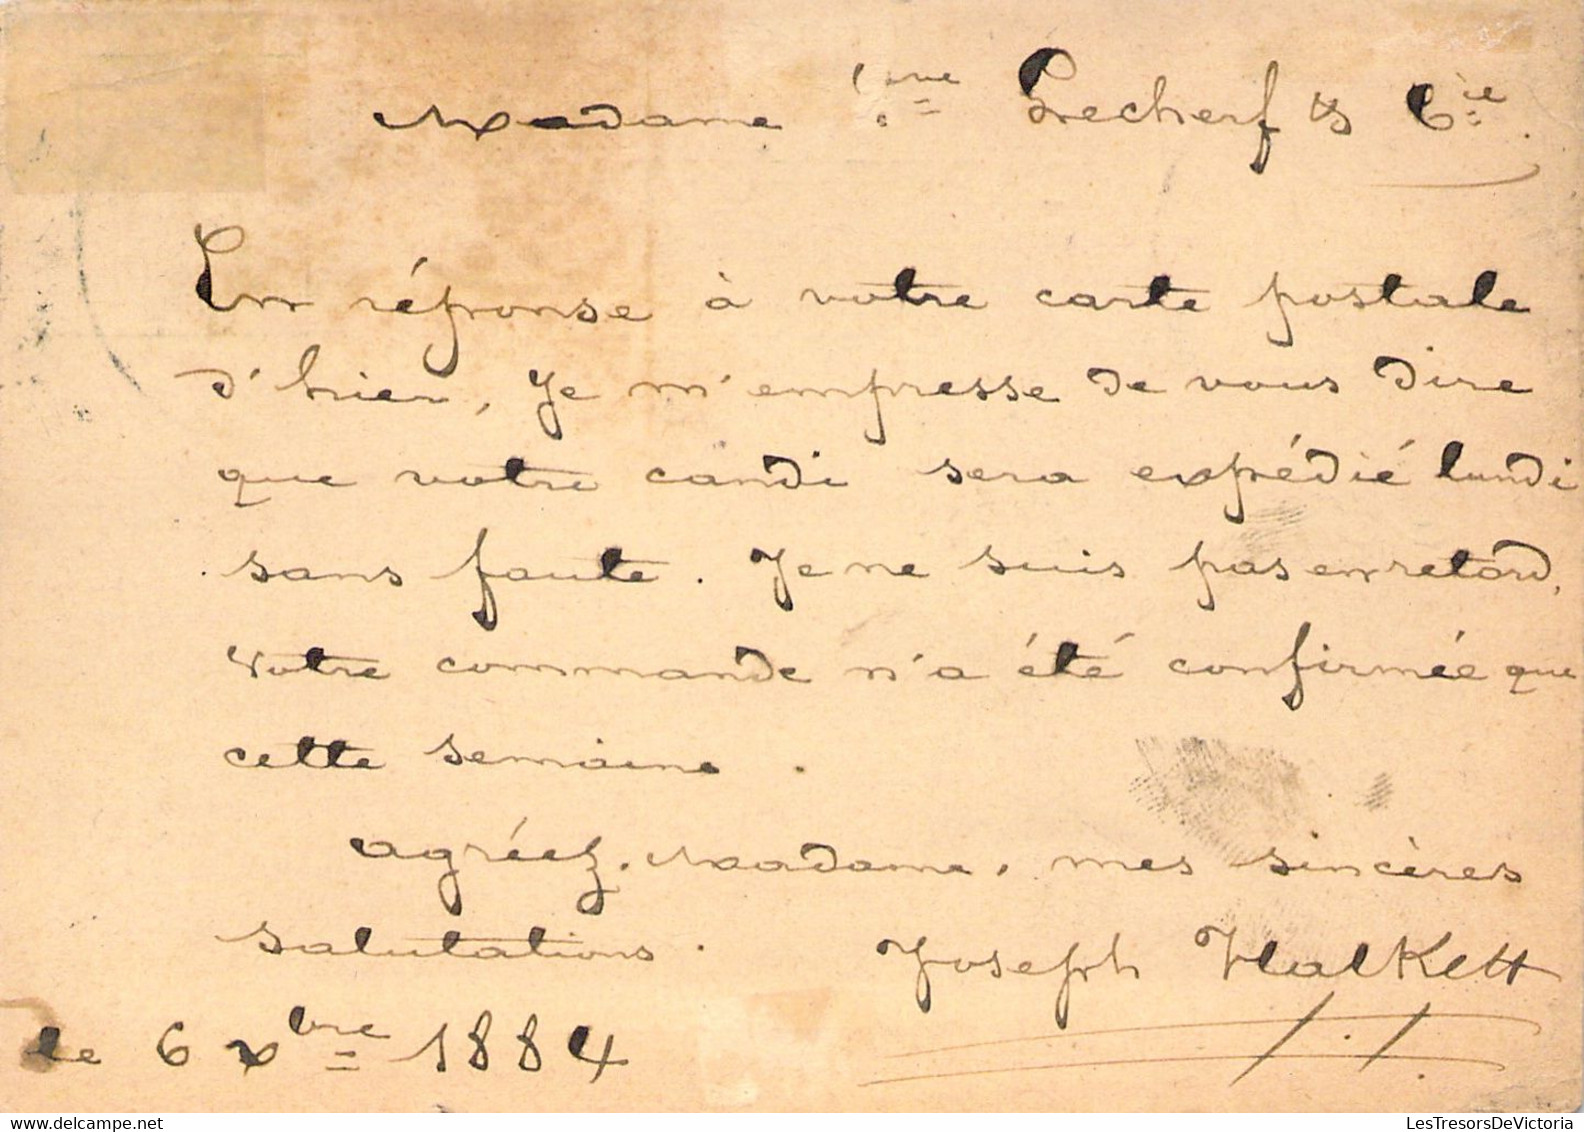 Madame Lecherf & Cie.
En réponse à votre carte postale
d'hier, je m'empresse de vous dire
que votre candi sera expédié lundi
sans faute. Je ne suis pas en retard,
Votre commande n'a été confirmée que
cette semaine.
agréez, Madame, mes sincères
salutations. Joseph Halkett
le 6 xbre 1884
www.delcampe.net
LesTresorsDeVictoria